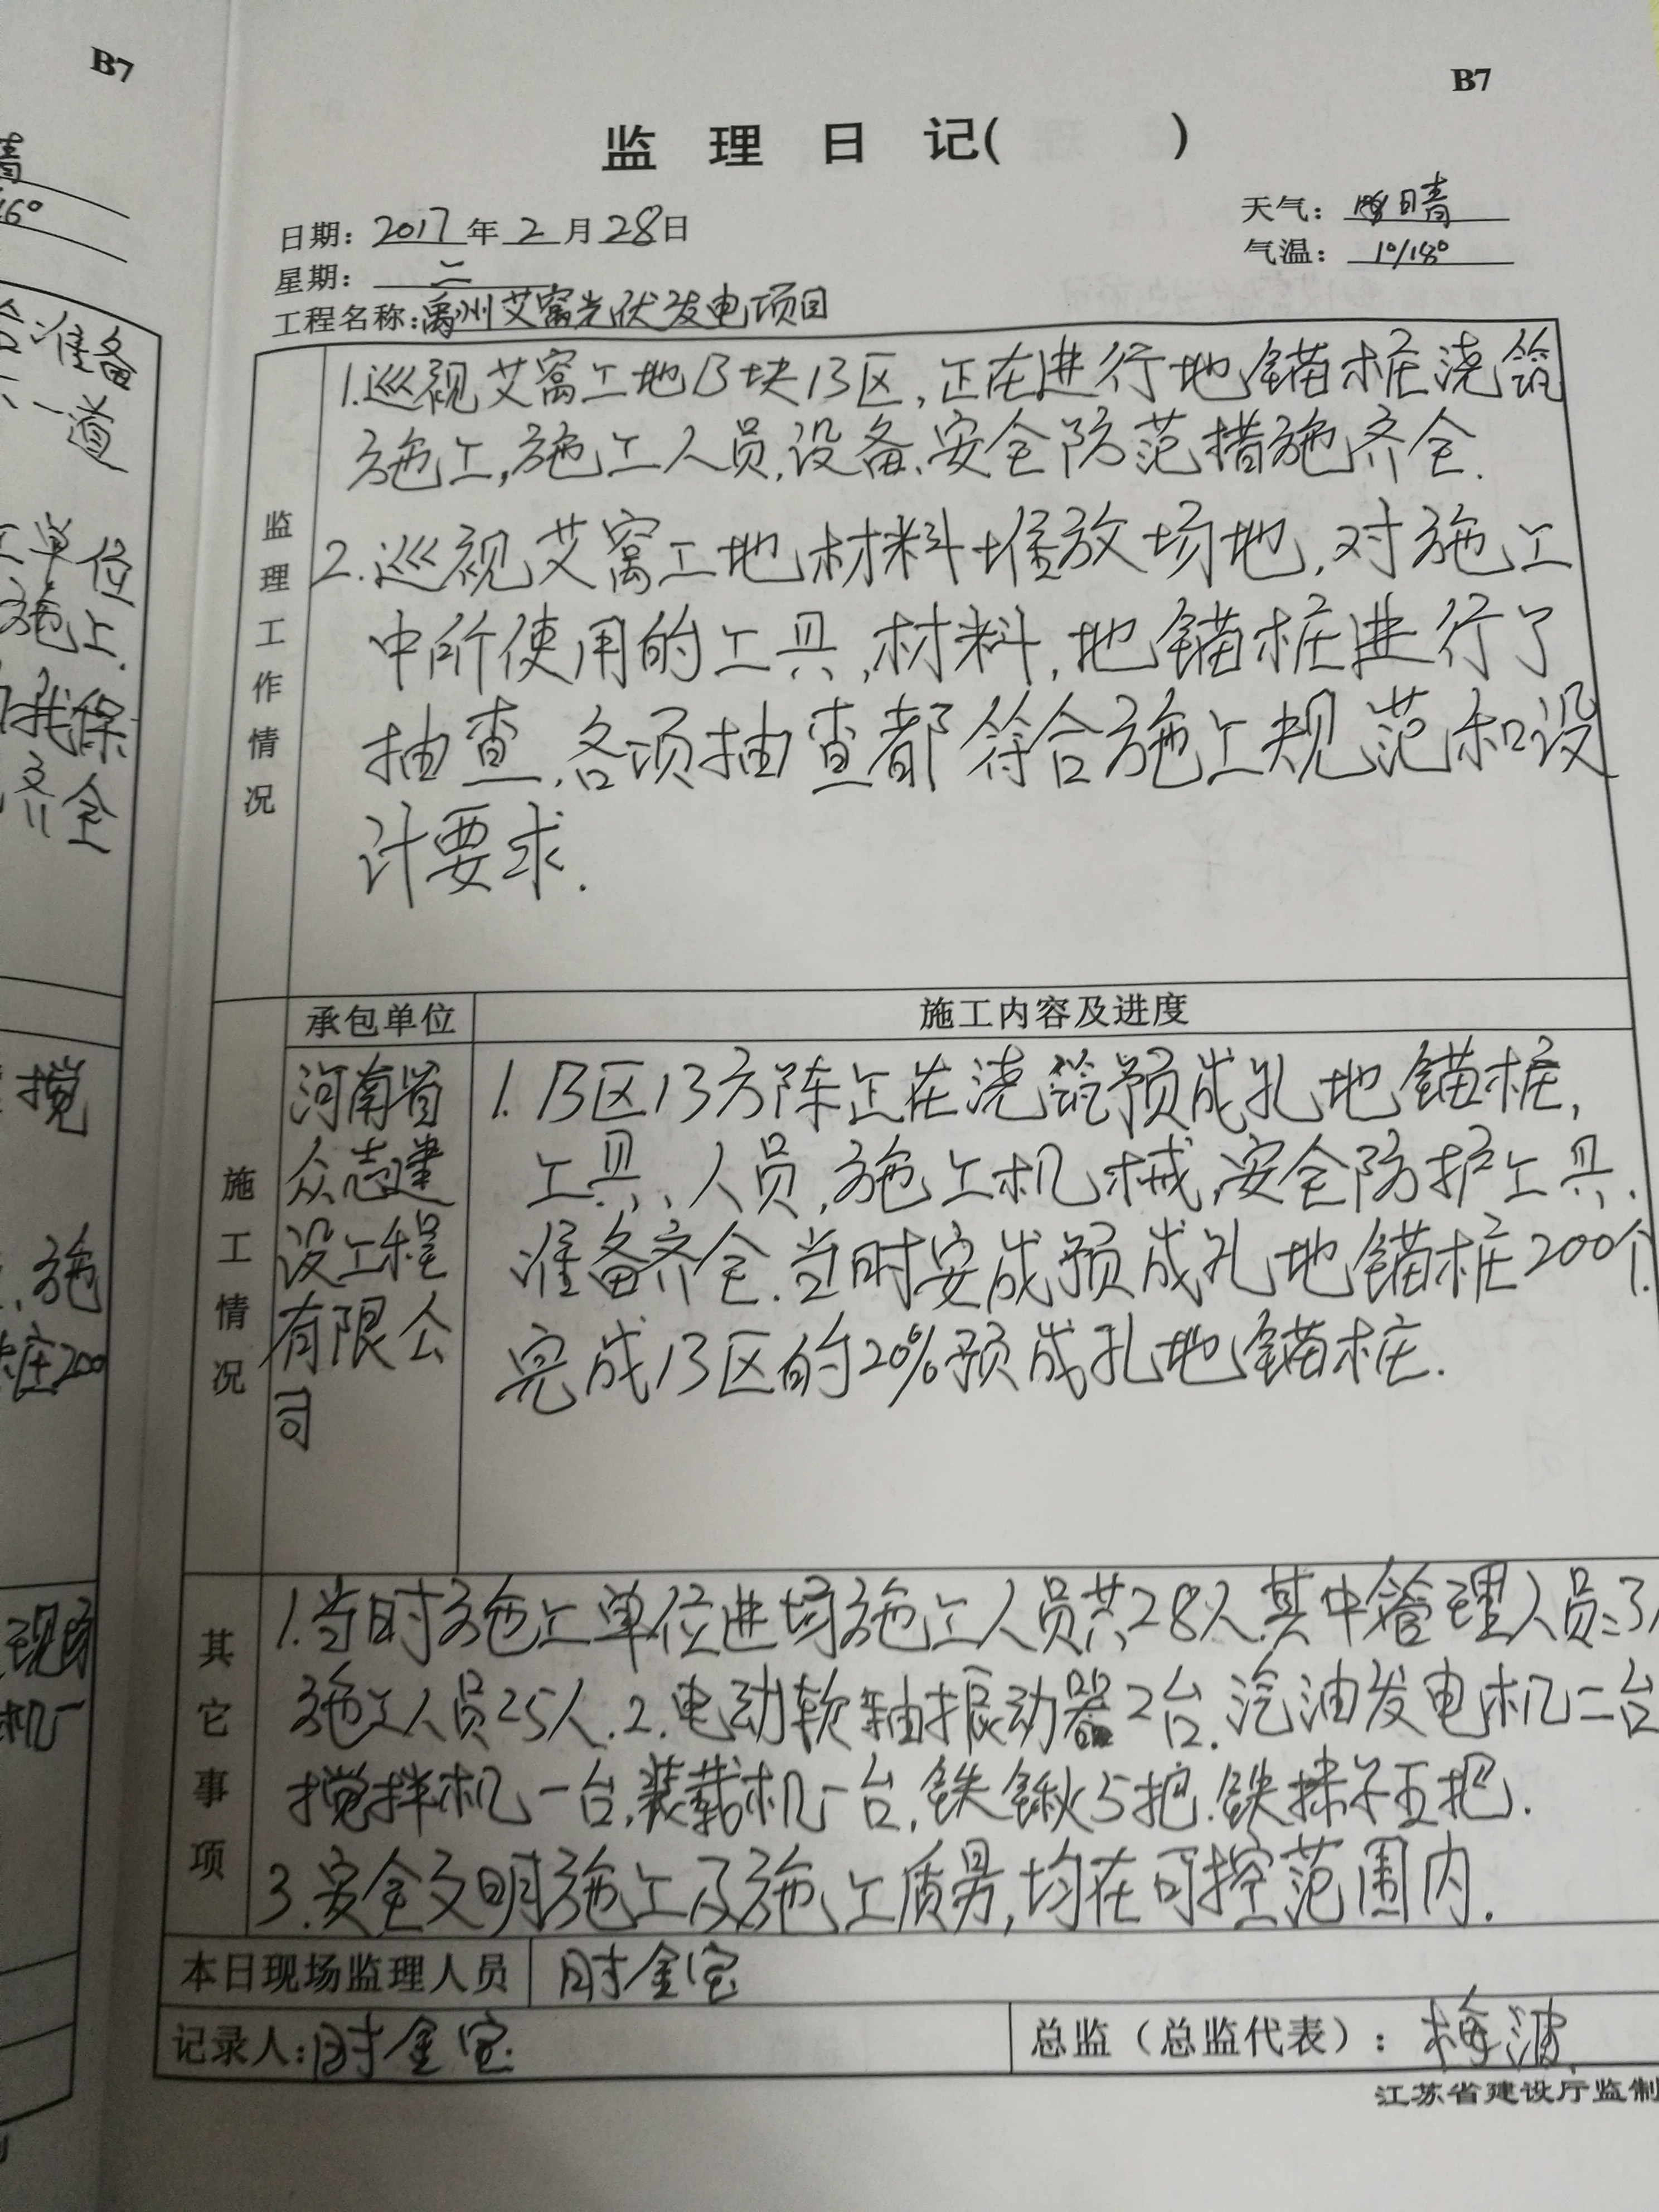 B7
晴
16°
准备
一道
工单位
施工.
我保
齐全
搅
施
桩200
现场
机一
B7
监 理 日 记( )
日期: 2017 年 2 月 28 日
天气: 晴
星期: 二
气温: 1°/18°
工程名称: 禹州艾窝光伏发电项目
监理工作情况
1.巡视艾窝工地13块13区,正在进行地锚桩浇筑
施工,施工人员,设备、安全防范措施齐全.
2.巡视艾窝工地材料堆放场地,对施工
中所使用的工具,材料,地锚桩进行了
抽查.各项抽查都符合施工规范和设
计要求.
承包单位
施工内容及进度
施工情况
河南省
众志建
设工程
有限公
司
1.13区13方阵正在浇筑预成孔地锚桩,
工具、人员,施工机械,安全防护工具.
准备齐全.当时安成预成孔地锚桩200个.
完成13区的20%预成孔地锚桩.
其它事项
1.当时施工单位进场施工人员共28人.其中管理人员:3人
施工人员25人.2.电动软轴振动器2台.汽油发电机二台
搅拌机一台,装载机一台,铁锹5把.铁抹子五把.
3.安全文明施工及施工质量,均在可控范围内.
本日现场监理人员 时金宝
记录人:时金宝
总监(总监代表): 梅波
江苏省建设厅监制